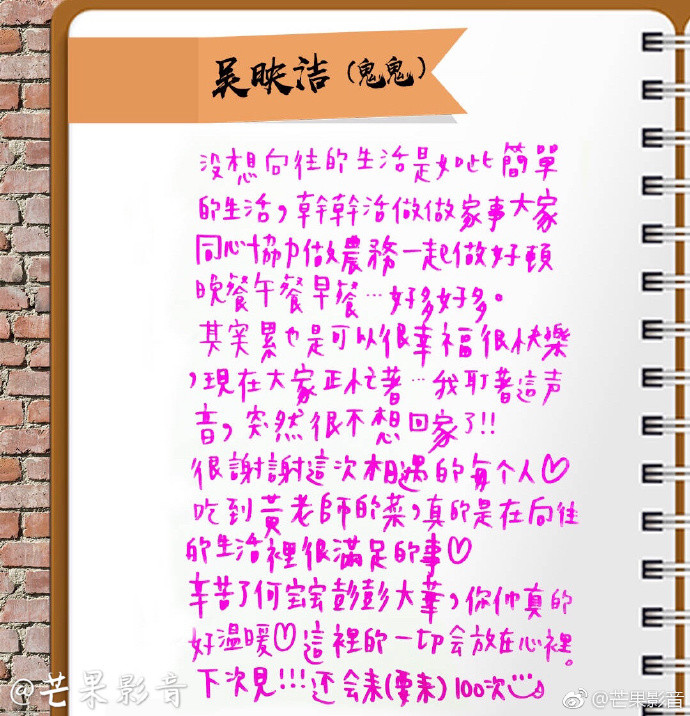 吴映洁（鬼鬼）
没想向往的生活是如此簡單
的生活，幹幹活做做家事大家
同心協力做農務一起做好頓
晚餐午餐早餐…好多好多。
其实累也是可以很幸福很快樂
，現在大家正忙著…我耵著這声
音，突然很不想回家了!!
很謝謝這次相遇的每个人♡
吃到黃老師的菜，真的是在向往
的生活裡很滿足的事♡
辛苦了何宝宝彭彭大華，你们真的
好温暖♡這裡的一切会放在心裡。
下次見!!!还会来(要来)100次
@芒果影音
@芒果影音